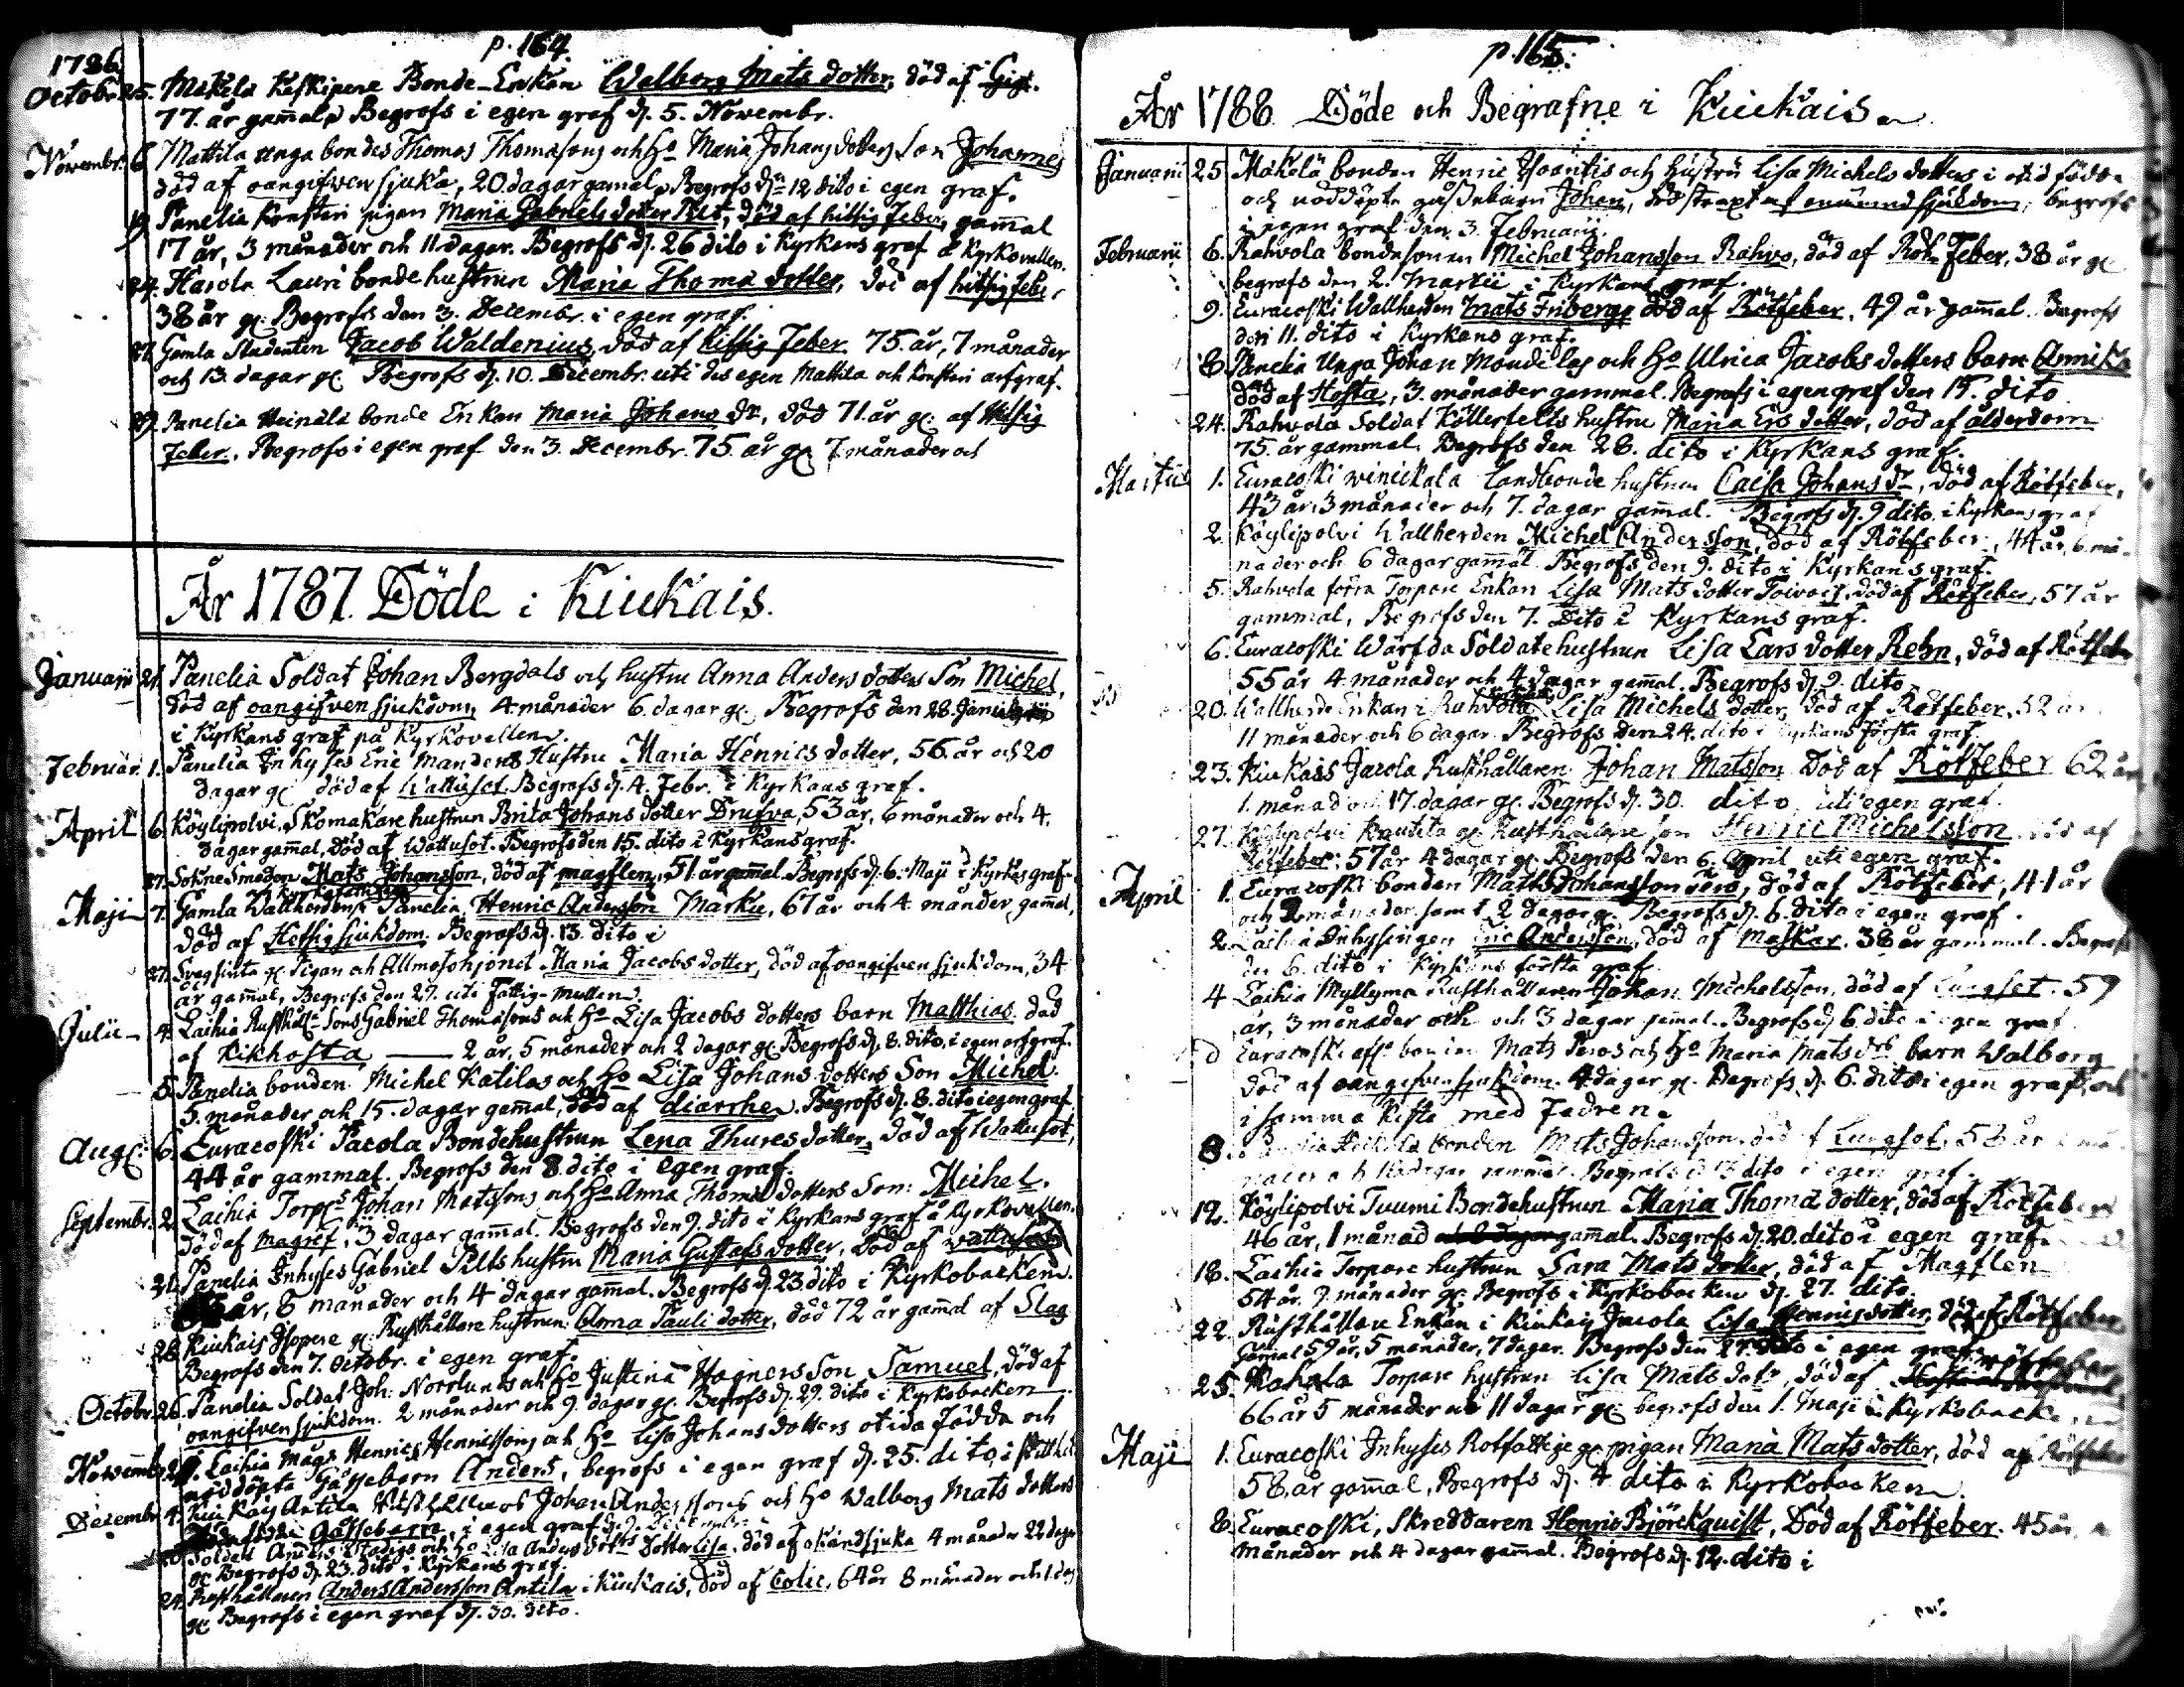 p. 164.
1786
Octobr. 25. Mäkelä Keskipere Bonde-Enkan Walborg Mats dotter, död af Gigt.
77. år gam̄al, Begrofs i egen graf d. 5. Novembr.
Novembr. 6. Mattila unga bondes Thomas Thomæsons och Ho Maria Johans dotters Son Johannes
död af oangifven sjuka, 20. dagar gamal, Begrofs dn 12 dito i egen graf.
19. Panelia Konsteri pigan Maria Gabriels dotter, död af hitsig feber, gam̄al
17 år, 3 månader och 11. dagar. Begrofs d. 26 dito i Kyrkans graf å Kyrkovallen.
24. Harola Lauri bonde hustrun Maria Thomæ dotter, död af hitsig feber
38 år g. Begrofs den 3. Decembr. i egen graf.
27. Gamla Studenten Jacob Waldenius, död af hitsig Feber 75. år, 7 månader
och 13. dagar g. Begrofs d. 10. Decembr. uti des egen Mattila och Konsteri arfgraf.
29. Panelia Heinälä bonde Enkan Maria Johans dr, död 71. år g. af Hitsig
Feber, Begrofs i egen graf den 3. Decembr. 75. år g. 7 månader och
År 1787. Döde i Kiukais.
Januarii 21. Panelia Soldat Johan Bergdals och hustru Anna Anders dotters Son Michel,
död af oangifven sjukdom, 4. månader 6. dagar g. Begrofs den 28. Januarii
i Kyrkans graf på Kyrkovallen.
Februar. 1. Panelia Inhyses Eric Mandens Hustru Maria Henrics dotter, 56. år och 20
dagar g. död af Wattusot. Begrofs d. 4. Febr. i Kyrkans graf.
April 6. Köylipolvi Skomakare hustrun Brita Johans dotter Drusva, 53 år, 6 månader och 4.
dagar gam̄al, död af Wattusot. Begrofs den 15. dito i Kyrkans graf.
27. Sokne Smeden Mats Johansson, död af magflen, 51. år gam̄al. Begrofs d. 6. Maji i Kyrkans graf
Maji 7. Gamla Wallherden i Panelia Henric Andersson Marku, 67 år och 4 månader gam̄al,
död af Hetsig sjukdom. Begrofs d. 13. dito i
27. g. Pigan och Allmosehjonet Maria Jacobs dotter, död af oangifven sjukdom, 34
år gam̄al, Begrofs den 27. uti Fattig-mullen.
Julii 4. Laihia Rusthåll. Sons Gabriel Thomæsons och Ho Lisa Jacobs dotters barn Matthias, död
af Kikhosta 2 år, 5 månader och 2 dagar g. Begrofs d. 8. dito, i egen arfgraf.
5. Panelia bonden Michel Katilas och Ho Lisa Johans dotters Son Michel
5. månader och 15. dagar gam̄al, död af diarrhe. Begrofs d. 8. dito i egen graf
Aug. 6. Euracoski Pacola Bondehustrun Lena Thures dotter, död af Wattusot,
44 år gammal. Begrofs den 8. dito i egen graf.
Septembr. 2. Laihia Torp. Johan Matssons och Ho Anna Thomæ dotters Son: Michel.
död af magref, 3 dagar gam̄al. Begrofs den 9. dito i Kyrkans graf å Kyrkovallen.
21. Panelia Inhyses Gabriel Pilts hustru Maria Gustafs dotter, död af wattusot
år, 6 månader och 4 dagar gam̄al. Begrofs d. 23. dito i Kyrkobacken.
28. Kiukais Isopere g. Rusthållare hustrun Anna Pauli dotter, död 72 år gam̄al af Slag
Begrofs den 7. Octobr. i egen graf.
Octobr. 26. Panelia Soldat Joh: Norrlunds och Ho Justina Hagners Son Samuel, död af
oangifven sjukdom. 2 månader och 9. dagar g. Begrofs d. 29. dito i Kyrkobacken
Novembr. Laihia Mågs Henrics Henricssons och Ho Lisa Johans dotters otida födda och
nöddöpta Gåssebarn Anders, begrofs i egen graf d. 25. dito,
Decembr. 4. Kiukais Antila Rusthållares Johan Anderssons och Ho Walborg Mats dotters
Gåssebarn, i egen graf d. 9. Decembr.
Soldat Anders Stadigs och Ho Lisa Anders dotters dotter Lisa, död af okänd sjuka 4 månader 22 dagar
g. Begrofs d. 23. dito i Kyrkans graf.
24. Rusthållaren Anders Andersson Antila i Kiukais, död af Colic, 64 år 8 månader och 1 dag
g. Begrofs i egen graf d. 30. dito.
p. 165.
År 1788. Döde och Begrafne i Kiukais.
Januarii 25. Mäkelä bonden Henric Isoantis och hustru Lisa Michels dotters i otid födde
och nöddöpte gåssebarn Johan, död straxt af onämnd sjukdom, begrofs
i egen graf den 3. Februarii.
Februarii 6. Rahvola bondesonen Michel Johansson Rahvo, död af Röt Feber, 38 år g.
begrofs den 2. Martii i Kyrkans graf.
9. Euracoski Wallherden Mats Friberg, död af Rötfeber, 49 år gam̄al. Begrofs
den 11. dito i Kyrkans graf.
8. Panelia Unga Johan Mondilas och Ho Ulrica Jacobs dotters barn Annika
död af Hosta, 3. månader gammal. Begrofs i egen graf den 15. dito
24. Rahvola Soldat Köllerfelts hustru Maria Ers dotter, död af ålderdom
75. år gammal. Begrofs den 28. dito i Kyrkans graf.
Martius 1. Euracoski winickala Landbonde hustrun Caisa Johans dr, död af Rötfeber,
43 år, 3 månader och 7. dagar gam̄al. Begrofs d. 9 dito. i Kyrkans graf
2. Köylipolvi Wallherden Michel Andersson, död af Rötfeber, 44 år, 6 må-
nader och 6 dagar gam̄al. Begrofs den 9. dito i Kyrkans graf.
5. Rahvola förra Torpare Enkan Lisa Mats dotter Toivois, död af Rötfeber, 57 år
gammal, Begrofs den 7. Dito i Kyrkans graf.
6. Euracoski Wärfda Soldatehustrun Lisa Lars dotter Rehn, död af Rötfeber
55 år 4 månader och 4 dagar gam̄al. Begrofs d. 9. dito
20. Wallherde Enkan i Rahvola Lisa Michels dotter, död af Rötfeber, 52 år
11 månader och 6 dagar. Begrofs den 24. dito i Kyrkans första graf.
23. Kiukais Jacola Rusthållaren Johan Matsson, Död af Rötfeber 62 år
1. månad och 17. dagar g. Begrofs d. 30. dito, uti egen graf.
27. Köylipolvi Kautita g. Rusthållare son Henric Michelsson, död af
Rötfeber: 57 år 4 dagar g. Begrofs den 6. April uti egen graf.
April 1. Euracoski bonden Matts Johansson Peros, död af Rötfeber, 41 år
och 2 månader samt 2 dagar g. Begrofs d. 6. dito i egen graf.
2. Laihia Inhysingen Eric Andersson, död af Maskar, 38 år gammal. Begrofs
den 6. dito i Kyrkans första graf.
4 Laihia Myllyma Rusthållaren Johan Michelsson, död af Lungsot. 59
år, 3 månader och och 3 dagar gam̄al. Begrofs d. 6 dito i egen graf
d Euracoski bonden Mats Peros och Ho Maria Mats drs barn Walborg
död af oangifven sjukdom. 4 dagar g. Begrofs d. 6. dito i egen graf, och
i samma kista med Fadren.
8. bonden Mats Johansson, död af Lungsot, 58 år
Begrofs d. 13 dito i egen graf.
12. Köylipolvi Tuumi Bondehustrun Maria Thomæ dotter, död af Rötfeber
46 år, 1 månad och 8 dagar gam̄al. Begrofs d. 20. dito i egen graf.
18. Laihia Torpare hustrun Sara Mats dotter, död af Magflen
54 år. 9. månader g. Begrofs i Kyrkobacken d. 27. dito.
22. Rusthållare Enkan i Kiukais Jacola Lisa Henrics dotter, död af Rötfeber
Gamal 59 år, 5 månader, 7 dagar. Begrofs den 27. dito i egen graf.
25. Kahala Torpare hustrun Lisa Mats dotr, död af rötfeber
66 år 5 månader och 11 dagar g. begrofs den 1. Maji i Kyrkobacken
Maji 1. Euracoski Inhyses Rotfattige g. pigan Maria Mats dotter, död af Rötfeber
58. år gam̄al, Begrofs d. 4 dito i Kyrkobacken.
8. Euracoski, Skreddaren Henric Björckquist, Död af Rötfeber. 45 år
månader och 4 dagar gam̄al. Begrofs d. 12. dito i